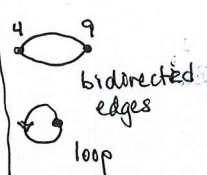 4 9
bidirected
edges
loop